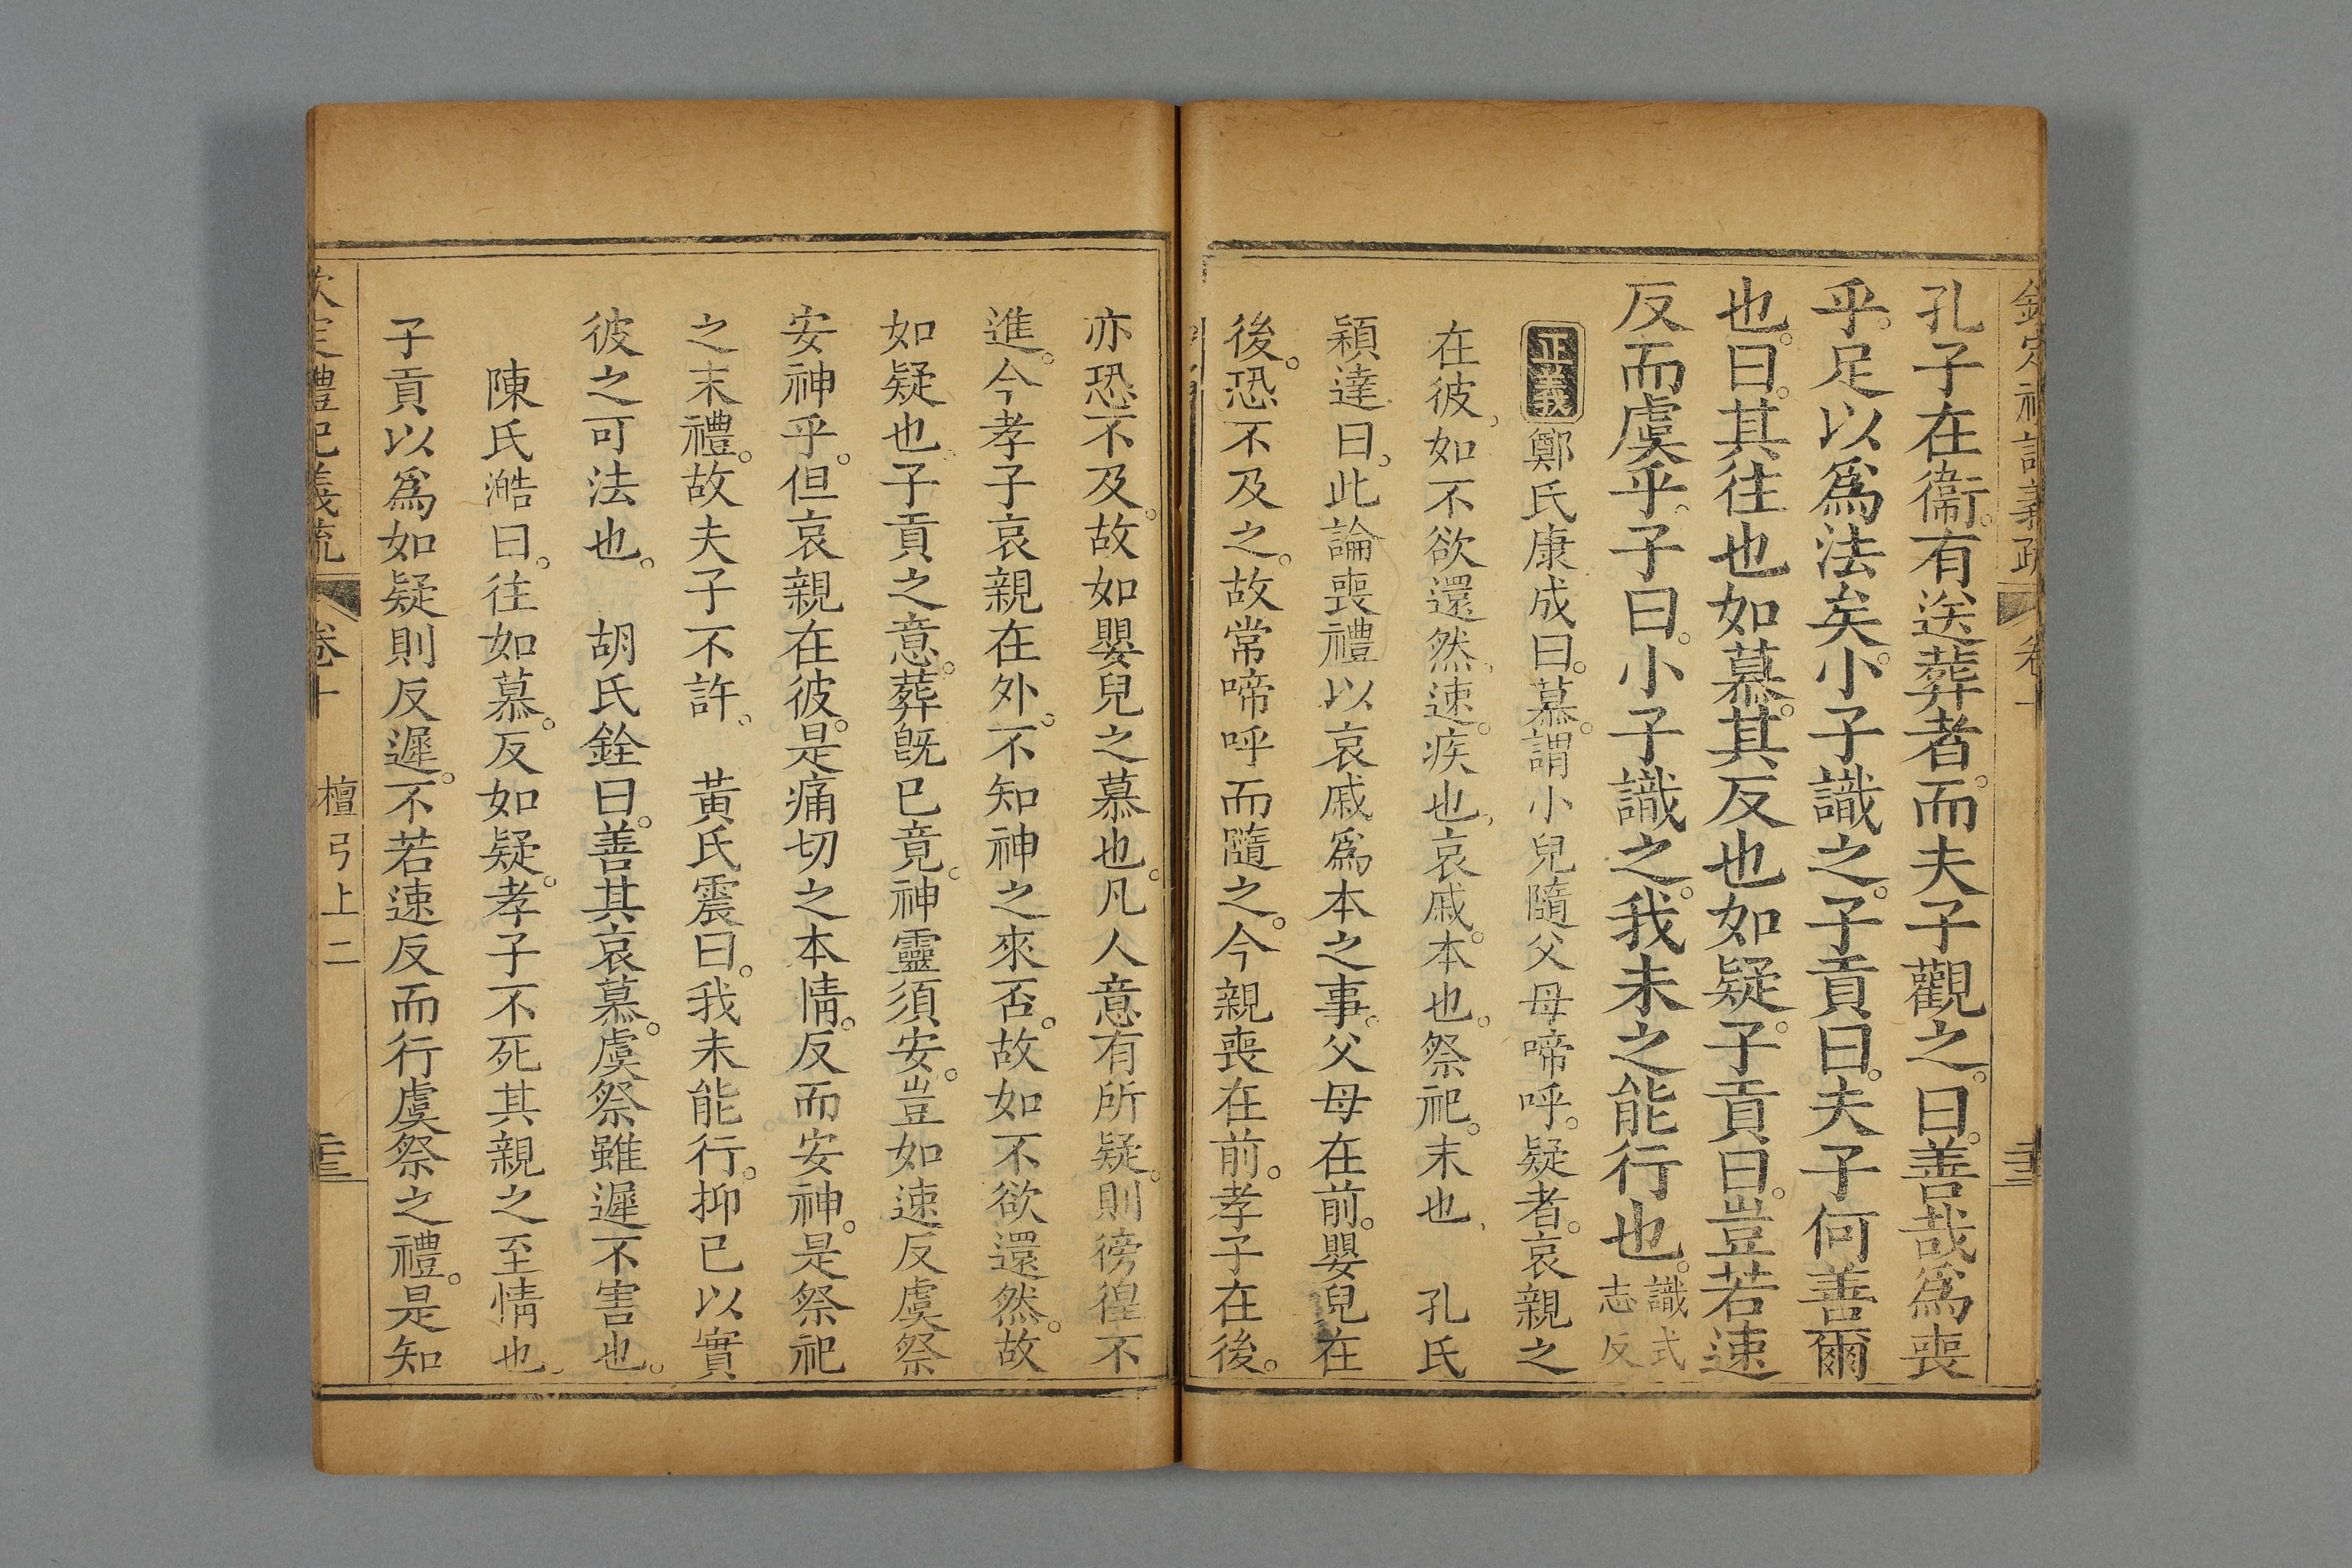 孔子在衞。有送葬者。而夫子觀之。曰。善哉爲喪
乎。足以爲法矣。小子識之。子貢曰。夫子何善爾
也。曰。其往也如慕。其反也如疑。子貢曰。豈若速
反而虞乎。子曰。小子識之。我未之能行也。識式志反
正義鄭氏康成曰。慕。謂小兒隨父母啼呼。疑者。哀親之
在彼。如不欲還然。速。疾也。哀戚。本也。祭祀。末也。 孔氏
穎達曰。此論喪禮以哀戚爲本之事。父母在前。嬰兒在
後。恐不及之。故常啼呼而隨之。今親喪在前。孝子在後。
亦恐不及。故如嬰兒之慕也。凡人意有所疑。則徬徨不
進。今孝子哀親在外。不知神之來否。故如不欲還然。故
如疑也。子貢之意。葬旣已竟。神靈須安。豈如速反虞祭
安神乎。但哀親在彼。是痛切之本情。反而安神。是祭祀
之末禮。故夫子不許。 黃氏震曰。我未能行。抑已以實
彼之可法也。 胡氏銓曰。善其哀慕。虞祭雖遲不害也。
陳氏澔曰。往如慕。反如疑。孝子不死其親之至情也。
子貢以爲如疑則反遲。不若速反而行虞祭之禮。是知
欽定禮記義疏 卷十 檀弓上二